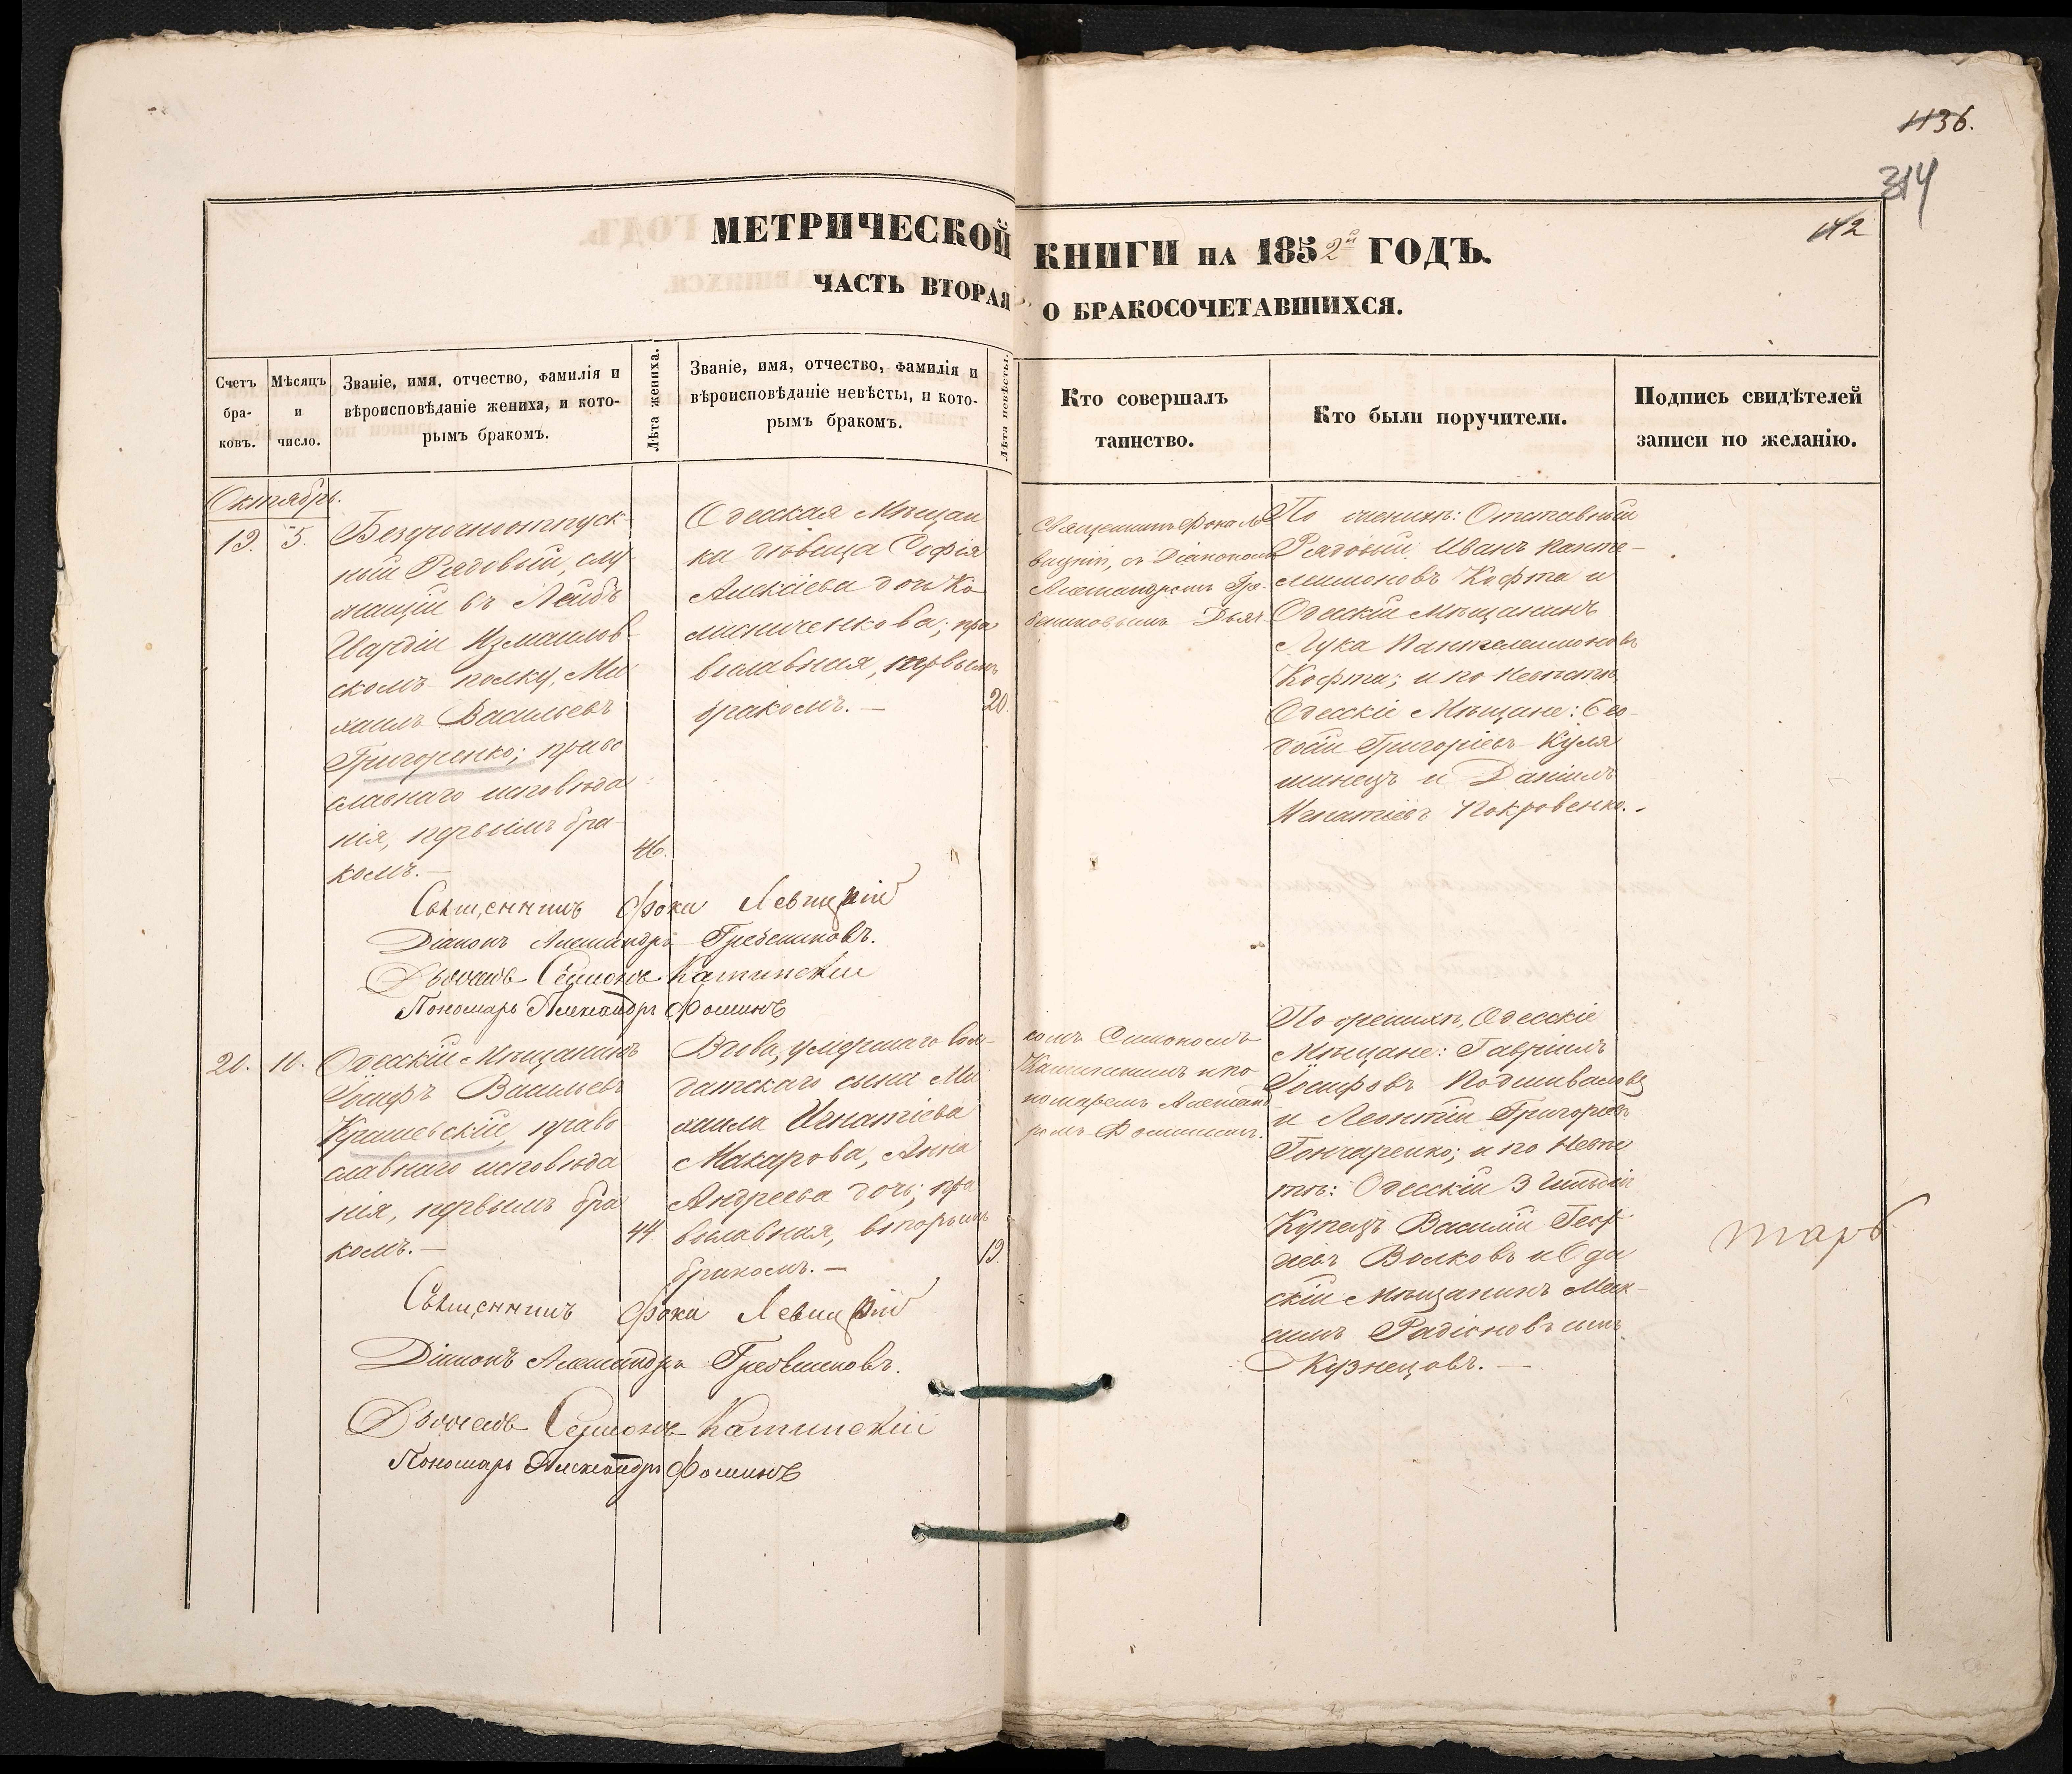 1136.
314
142
МЕТРИЧЕСКОЙ КНИГИ НА 1852й ГОДЪ.
ЧАСТЬ ВТОРАЯ, О БРАКОСОЧЕТАВШИХСЯ.
Счетъ бра-
ковъ.
Мѣсяцъ
и
число.
Званіе, имя, отчество, фамилія и
вѣроисповѣданіе жениха, и кото-
рымъ бракомъ.
Лѣта жениха.
Званіе, имя, отчество, фамилія и
вѣроисповѣданіе невѣсты, и кото-
рымъ бракомъ.
Лѣта невѣсты.
Кто совершалъ
таинство.
Кто были поручители.
Подпись свидѣтелей
записи по желанію.
Октябрь.
19. 5.
Безсрочноотпуск-
ный Рядовый, слу-
жащій въ Лейбъ
Гвардіи Измаилов-
скомъ полку, Ми-
хаилъ Васильевъ
Григоренко; право
славнаго исповѣда
нія, первымъ бра-
комъ.—
46.
Одесская Мѣщан
ка дѣвица Софія
Алексіева дочь Ко-
лисниченкова; пра
вославная, первымъ
бракомъ.—
20.
Священникъ Фока Ле
вицкій, съ Діакономъ
Александромъ Гре-
бенниковымъ Дьяч-
По женихѣ: Отставный
Рядовый Иванъ Панте-
леимоновъ Кофта и
Одесскій Мѣщанинъ
Лука Пантелеимоновъ
Кофта; и по Невѣстѣ
Одесскіе Мѣщане: Ѳео-
досій Григорьевъ Куля
шинецъ и Даніилъ
Игнатіевъ Покровенко.-
Священникъ Фока Левицкій
Діаконъ Александръ Гребенниковъ.
Дьячекъ Симонъ Катинскій
Пономарь Александръ Фоминъ
20. 10.
Одесскій Мѣщанинъ
Іосифъ Васильевъ
Крашевскій, право
славнаго исповѣда
нія, первымъ бра
комъ.—
44
Вдова, умершаго сол-
датскаго сына Ми
хаила Игнатіева
Макарова, Анна
Андреева дочь; пра
вославная, вторымъ
бракомъ.—
19.
комъ Симономъ
Катинскимъ и по-
номаремъ Александ
ромъ Фоминымъ.
По женихѣ, Одесскіе
Мѣщане: Гавріилъ
Іосифовъ Подшиваловъ
и Леонтій Григорьевъ
Гончаренко; и по Невѣс
тѣ: Одесскій 3 Гильдіи
Купецъ Василій Геор-
гіевъ Волковъ и Одес
скій Мѣщанинъ Мак-
симъ Радіоновъ сынъ
Кузнецовъ.—
тарь
Священникъ Фока Левицкій
Діаконъ Александръ Гребенниковъ.
Дьячекъ Симонъ Катинскій
Пономарь Александръ Фоминъ